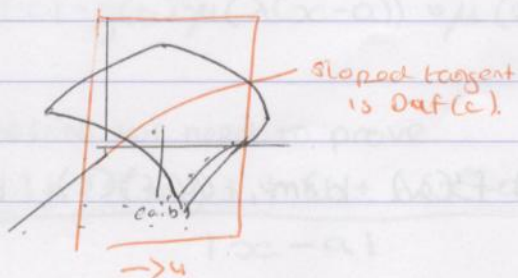 sloped tangent
is Duf(c).
(a,b)
→u